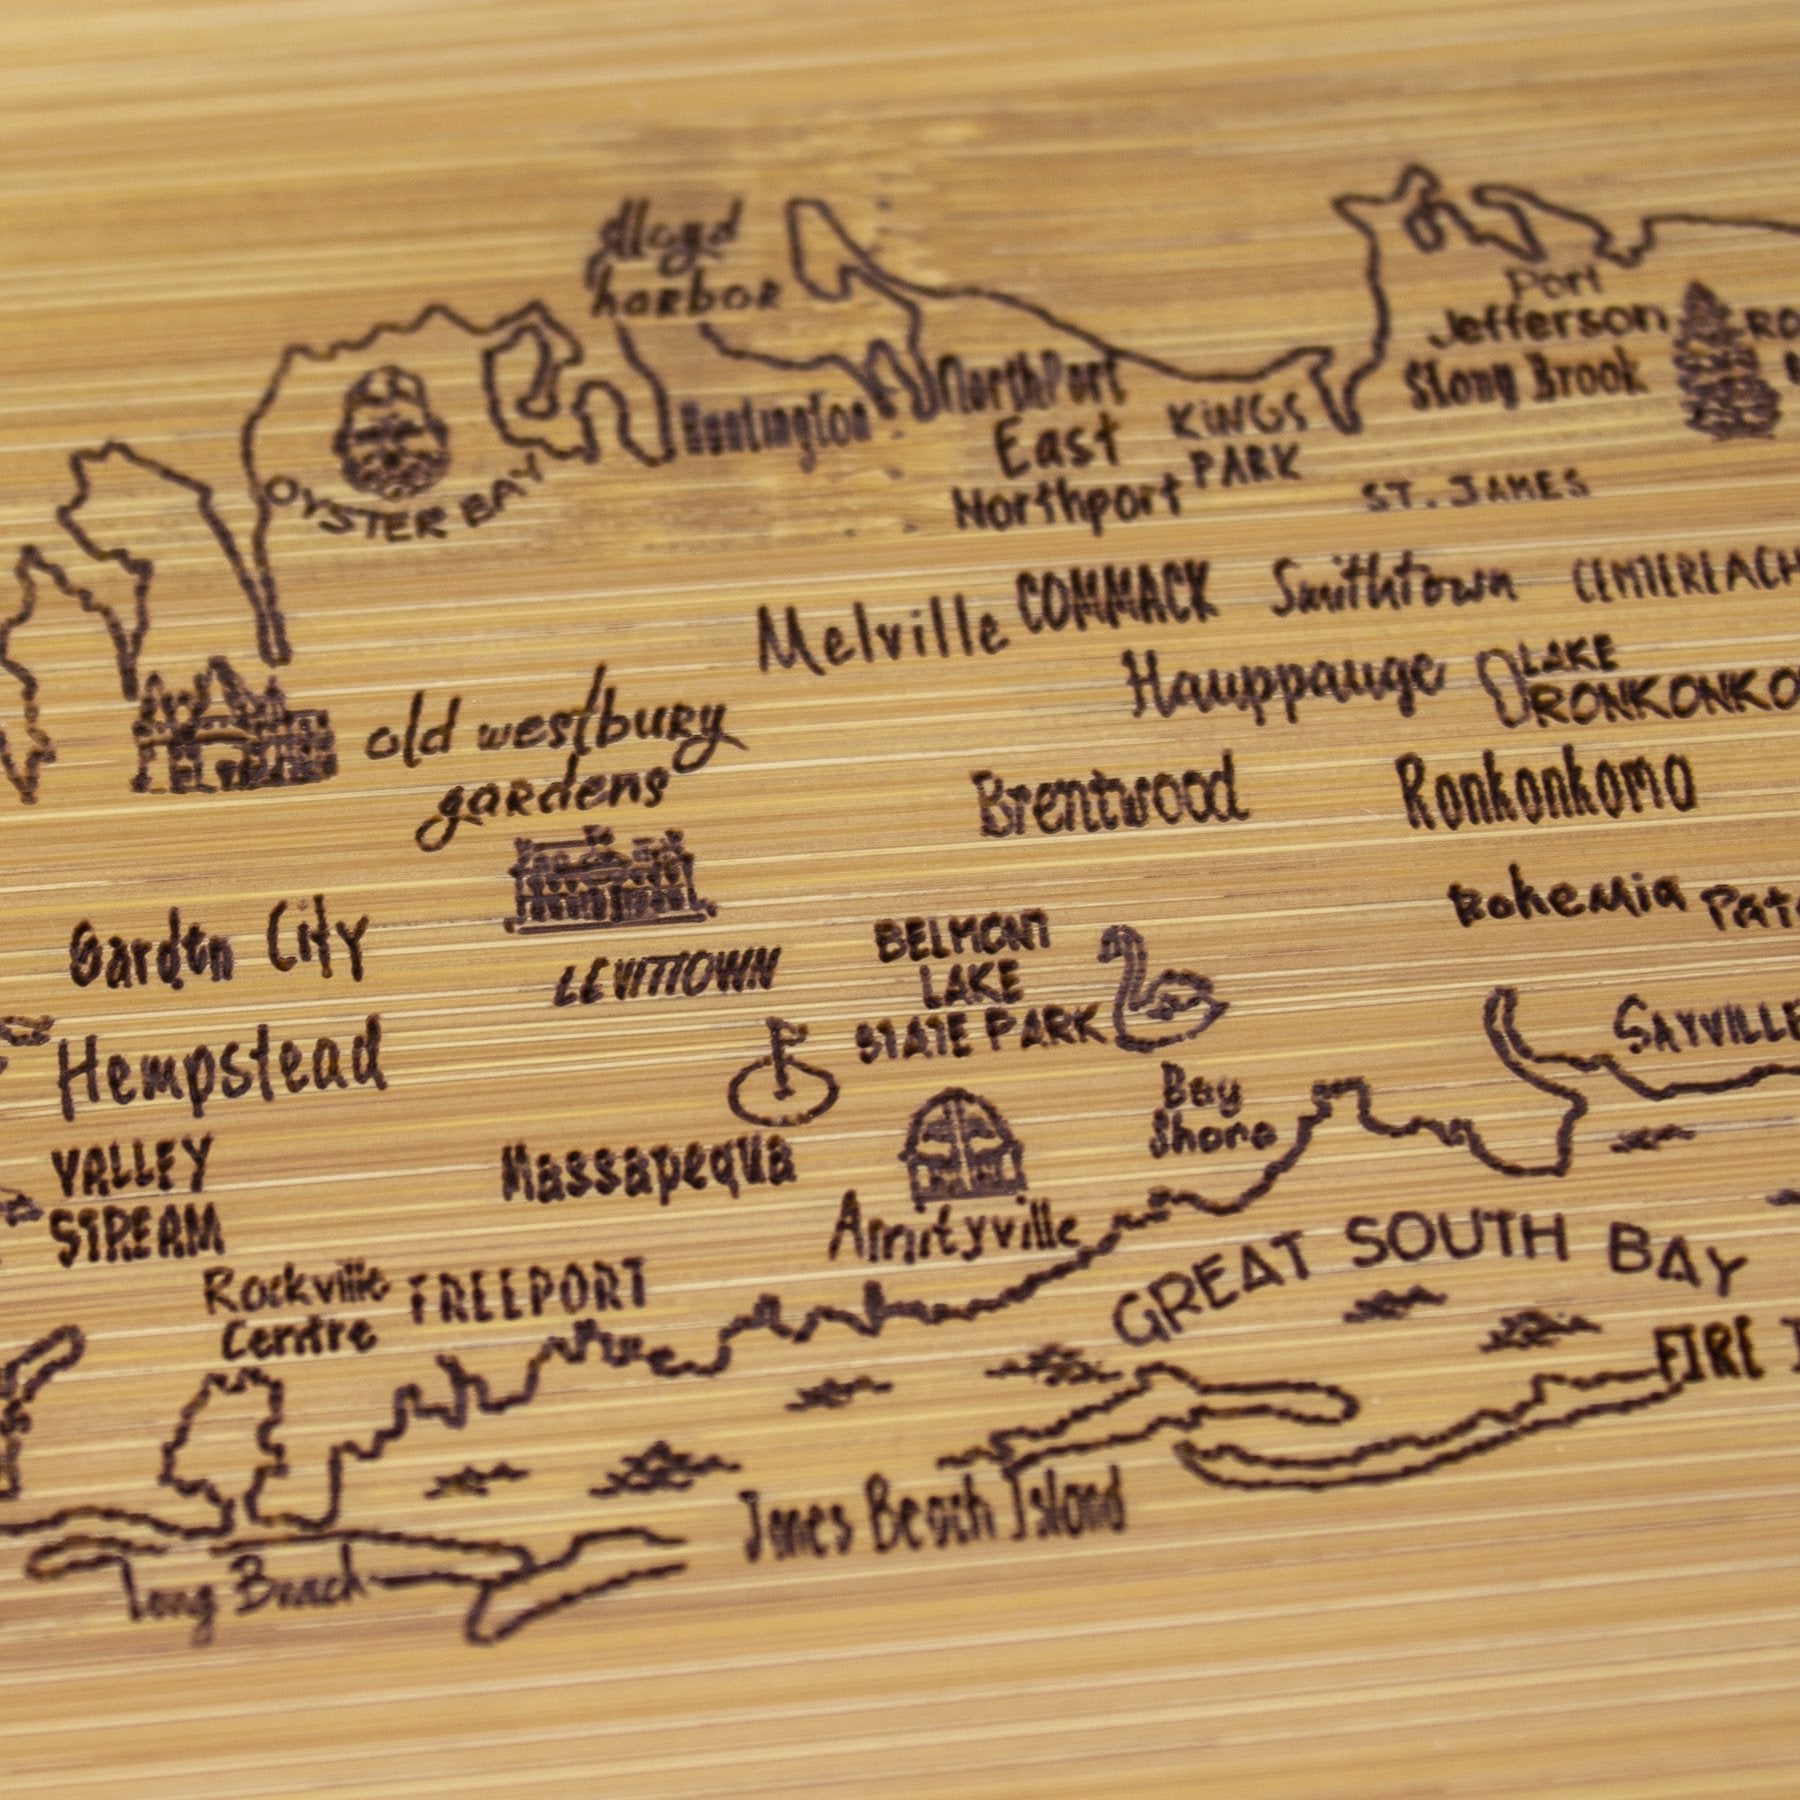 lloyd
harbor
Port
Jefferson
Stony Brook
RO
OYSTER BAY
Huntington
NorthPort
East
Northport
KINGS
PARK
ST. JAMES
Melville
COMMACK
Smithtown
CENTEREACH
Hauppauge
LAKE
RONKONKO
old westbury
gardens
Brentwood
Ronkonkoma
Bohemia
Patc
Garden City
LEVITTOWN
BELMONT
LAKE
STATE PARK
SAYVILLE
Hempstead
Bay
Shore
VALLEY
STREAM
Massapequa
Amityville
Rockville
Centre
FREEPORT
GREAT SOUTH BAY
FIRE I
Jones Beach Island
Long Beach